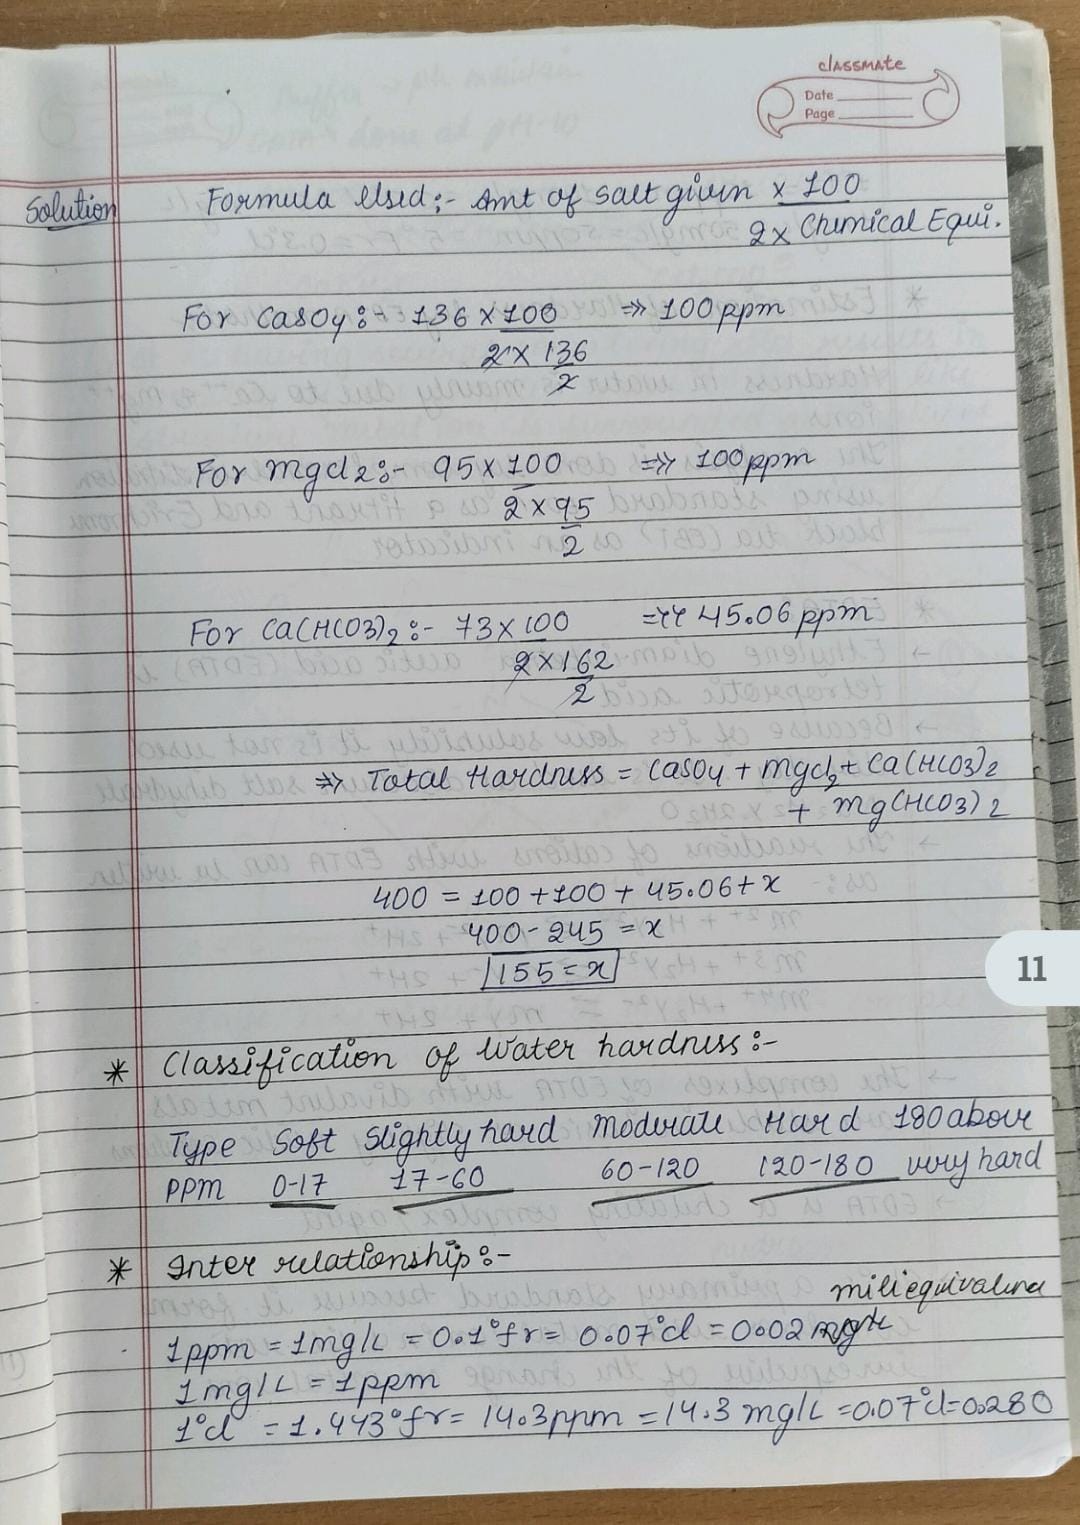 classmate
Date
Page
Solution
Formula Used :- Amt of salt given x 100
2 x Chemical Equi.
For CaSO4 :- 136 x 100 => 100 ppm
2 x 136
2
For mgcl2 :- 95 x 100 => 100 ppm
2 x 95
2
For Ca(HCO3)2 :- 73 x 100 => 45.06 ppm
2 x 162
2
=> Total Hardness = CaSO4 + mgcl2 + Ca(HCO3)2
+ mg(HCO3)2
400 = 100 + 100 + 45.06 + x
400 - 245 = x
155 = x
11
* Classification of Water hardness :-
Type Soft Slightly hard Moderate Hard 180 above
PPM 0-17 17-60 60-120 120-180 very hard
* Inter relationship :-
1ppm = 1mg/L = 0.1°fr = 0.07°cl = 0.02
1mg/L = 1ppm
1°cl = 1.443°fr = 14.3ppm = 14.3 mg/L = 0.07°cl = 0.280